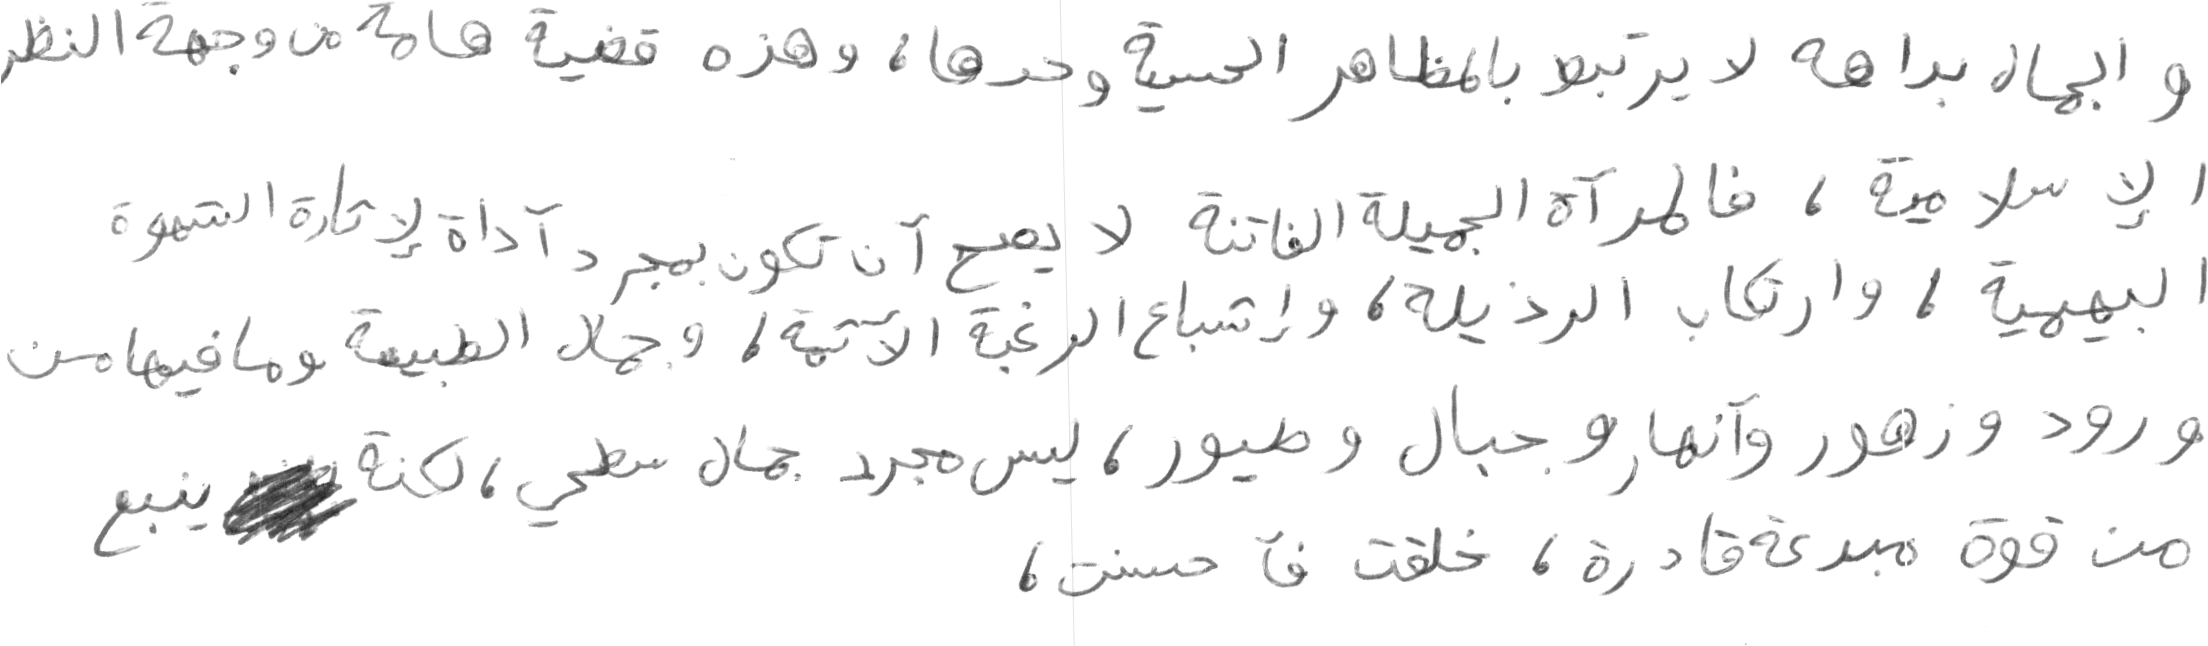 والجمال بداهة لا يرتبط بالمظاهر الحسية وحدها، وهذه قضية هامة من وجهة النظر
الإسلامية، فالمرآة الجميلة الفاتنة لا يصح آن تكون بمجرد آداة لإثارة الشهوة
البهيمية، وارتكاب الرذيلة، وإشباع الرغبة الآثمة، وجمال الطبيعة وما فيها من
ورود وزهور وآنهار وجبال وطيور، ليس مجرد جمال سطحي، لكنة ينبع
من قوة مبدعة قادرة، خلقت فآحسنت،